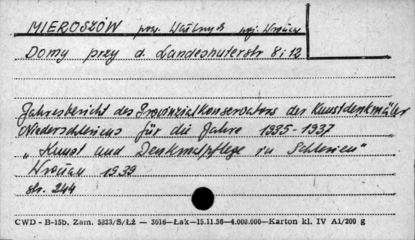 MIEROSZÓW pow. Wałbrzych woj. Wrocław
Domy przy d. Landeshuterstr 8 i 12
Jahresbericht des Provinzialkonservators der Kunstdenkmäler
Niederschlesiens für die Jahre 1935-1937
„Kunst und Denkmalpflege in Schlesien"
Wrocław 1939
str. 244
CWD - B-15b. Zam. 5823/S/Łż — 3016—Łak—15.11.56—4.000.000—Karton kl. IV A1/200 g